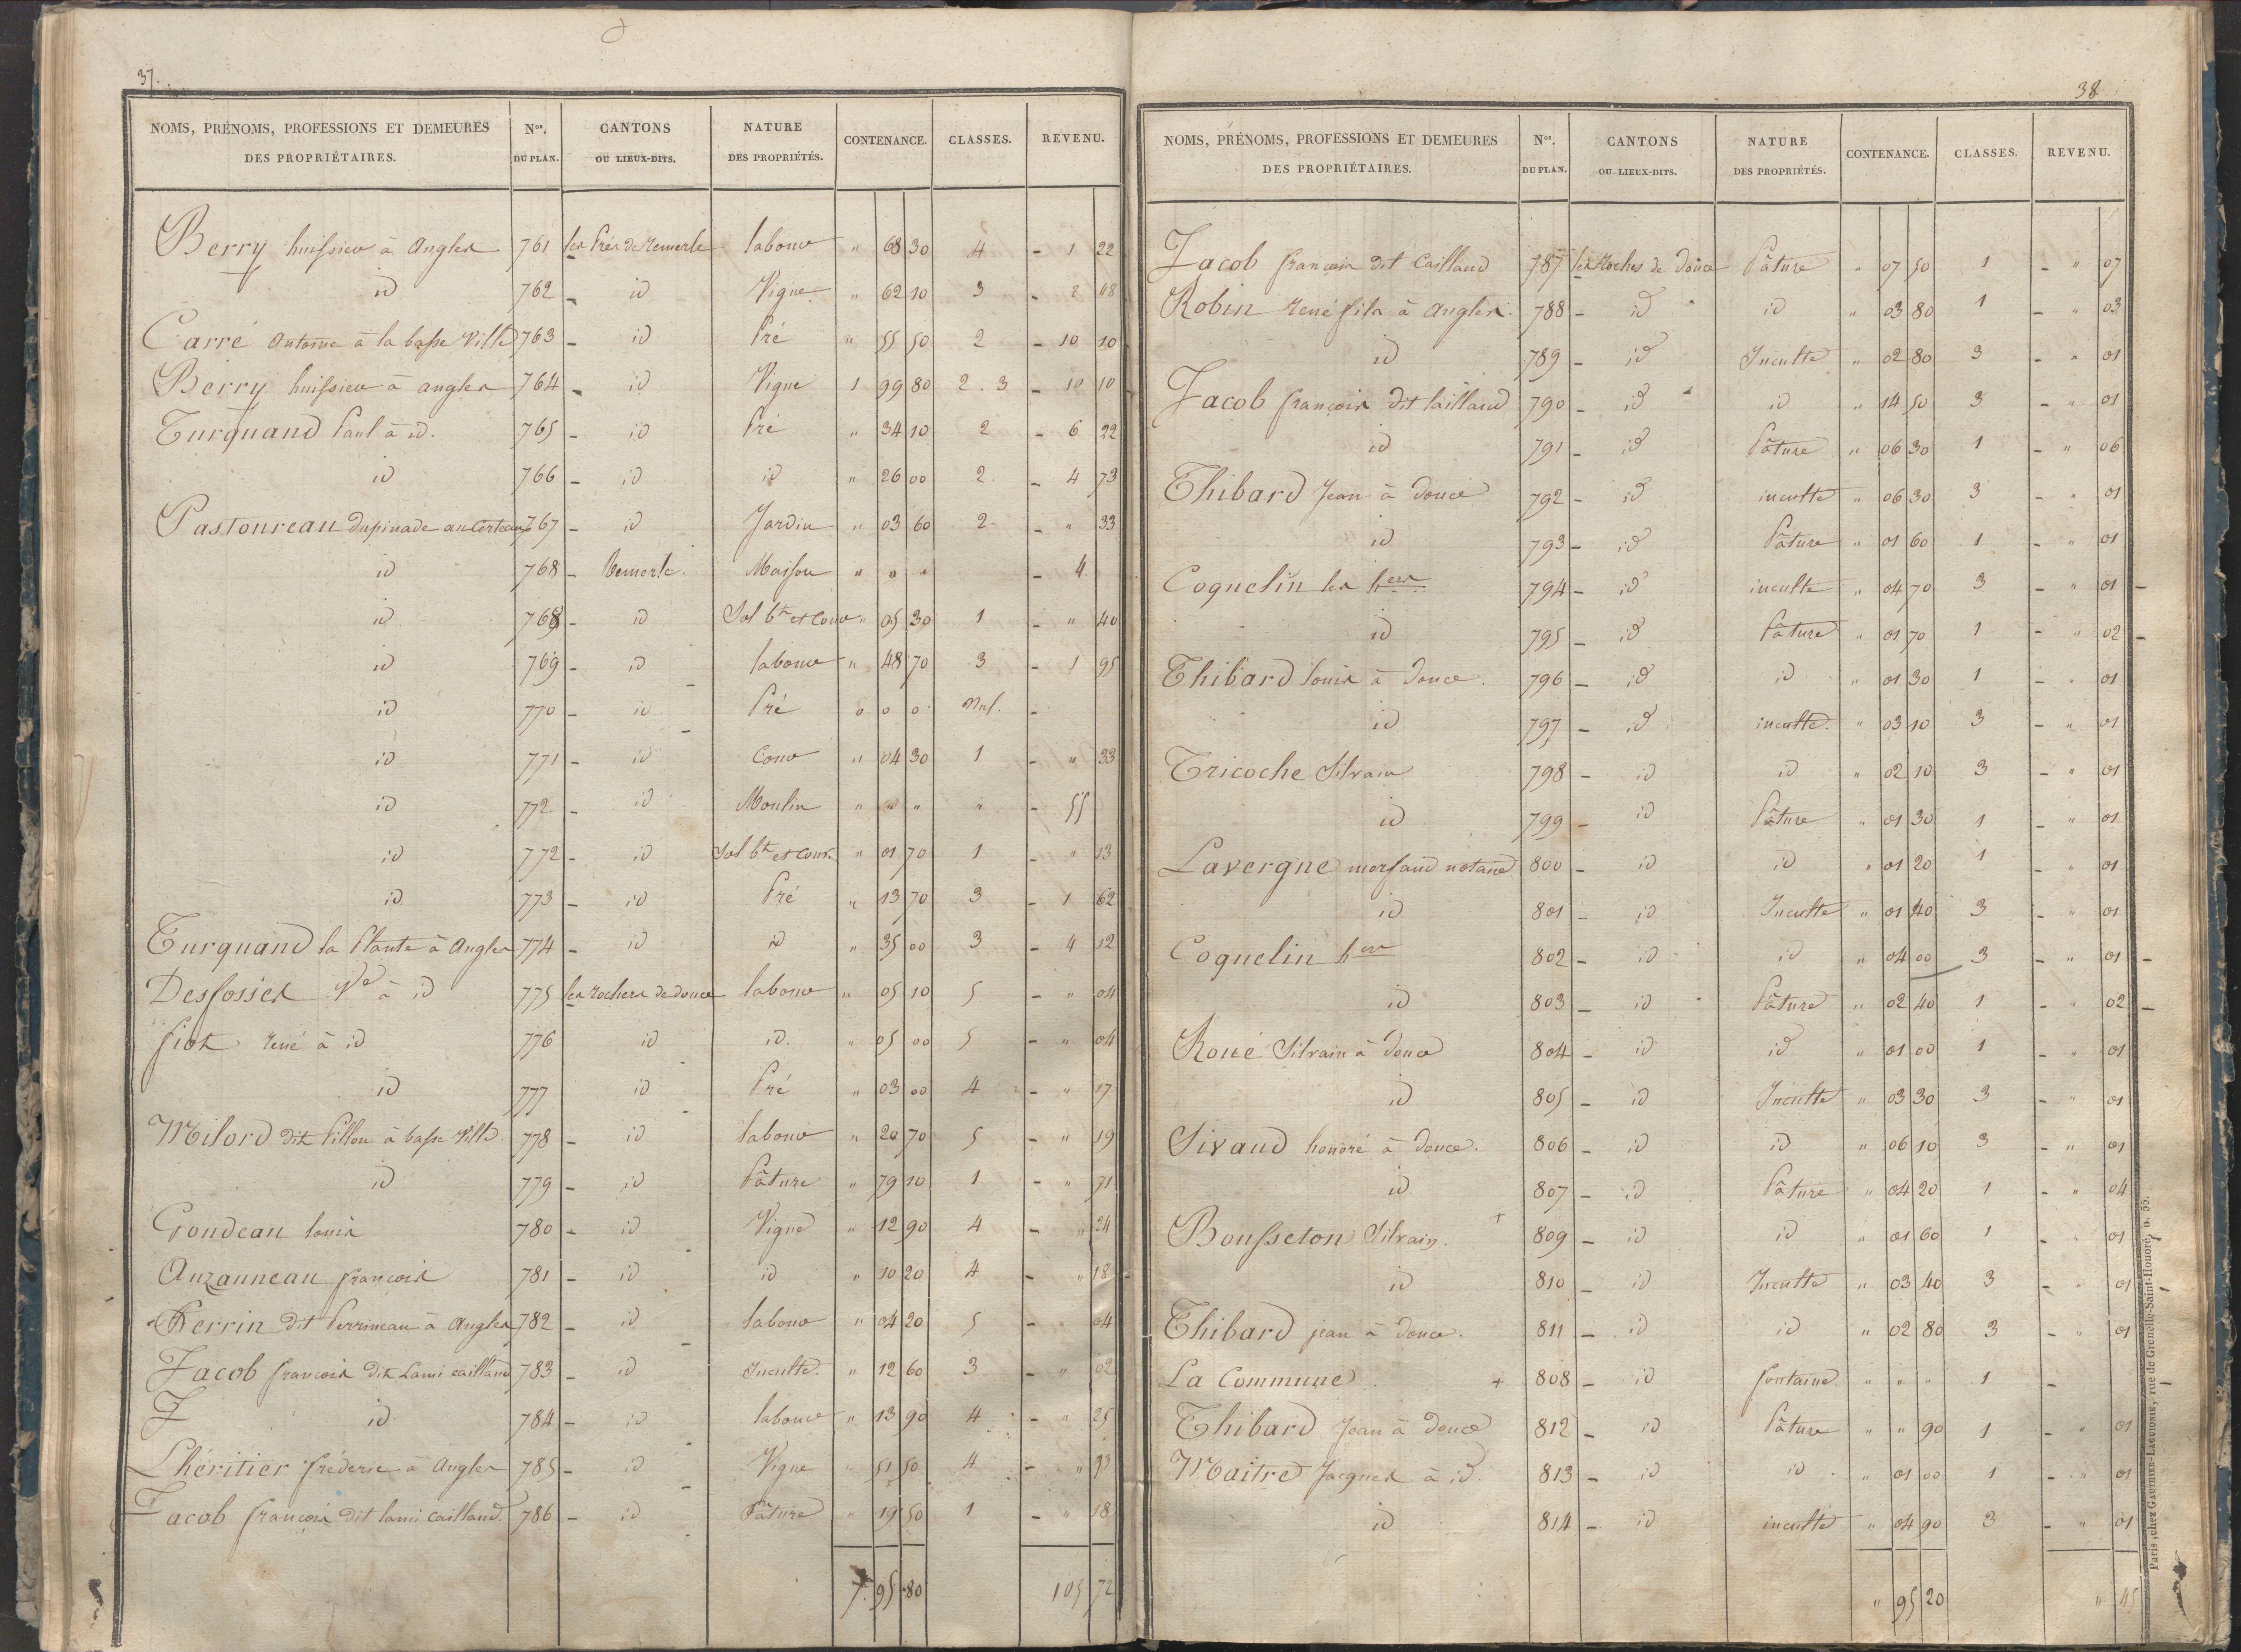 37.
NOMS, PRÉNOMS, PROFESSIONS ET DEMEURES DES PROPRIÉTAIRES. Nos. DU PLAN. CANTONS OU LIEUX-DITS. NATURE DES PROPRIÉTÉS. CONTENANCE. CLASSES. REVENU.
Berry huissier à Angles 761 les Prés de Remerle labour " 68 30 4 - 1 22
id 762 - id Vigne " 62 10 3 - 2 48
Carré Antoine à la basse Ville 763 - id Pré " 55 50 2 - 10 10
Berry huissier à angles 764 - id Vigne 1 99 80 2.3 - 10 10
Turquand Paul à id. 765 - id Pré " 34 10 2 - 6 22
id 766 - id id " 26 00 2 - 4 73
Pastoureau dupinade au Certeau 767 - id Jardin " 03 60 2 - " 33
id 768 - Remerle. Maison " " " - 4
id 768 - id Sol bt et Cour " 05 30 1 - " 40
id 769 - id labour " 48 70 3 - 1 95
id 770 - id Pré o o o Nul. -
id 771 - id Cour " 04 30 1 - " 33
id 772 - id Moulin " " " " - 55
id 772 - id Sol bt et Cour. " 01 70 1 - " 13
id 773 - id Pré " 13 70 3 - 1 62
Turquand la Plante à Angles 774 - id id " 35 00 3 - 4 12
Desfosses Ve à id 775 les rochers de douce labour " 05 10 5 - " 04
fiot René à id 776 id id. " 05 00 5 - " 04
id 777 id Pré " 03 00 4 - " 17
Milord dit Pillou à basse Ville 778 - id labour " 20 70 5 - " 19
id 779 - id Pâture " 79 10 1 - " 71
Gondeau louis 780 - id Vigne " 12 90 4 - " 24
Auzanneau françois 781 - id id " 10 20 4 - " 18
Perrin dit Perrineau à Angles 782 - id labour " 04 20 5 - " 04
Jacob françois dit Lami caillaud 783 - id Inculte. " 12 60 3 - " 02
J id 784 - id labour " 13 90 4 - " 25
Lhéritier fréderic à Angles 785 - id Vigne " 51 50 4 - " 93
Jacob françois dit lami Caillaud. 786 - id Pâture " 19 50 1 - " 18
7. 95 80 105 72
38
NOMS, PRÉNOMS, PROFESSIONS ET DEMEURES DES PROPRIÉTAIRES. Nos. DU PLAN. CANTONS OU LIEUX-DITS. NATURE DES PROPRIÉTÉS. CONTENANCE. CLASSES. REVENU.
Jacob françois dit Caillaud 787 les Roches de Douce Pâture " 07 50 1 - " 07
Robin René fils à Angles. 788 - id id " 03 80 1 - " 03
id 789 - id Inculte " 02 80 3 - " 01
Jacob françois dit Caillaud 790 - id id " 14 50 3 - " 01
id 791 - id Pâture " 06 30 1 - " 06
Thibard Jean à douce 792 - id inculte " 06 30 3 - " 01
id 793 - id Pâture " 01 60 1 - " 01
Coquelin les hers 794 - id inculte " 04 70 3 - " 01 -
id 795 - id Pâture " 01 70 1 - " 02 -
Thibard louis à douce. 796 - id id " 01 30 1 - " 01
id 797 - id inculte. " 03 10 3 - " 01
Tricoche Silvain 798 - id id " 02 10 3 - " 01
id 799 - id Pâture " 01 30 1 - " 01
Lavergne morsaud notaire 800 - id id " 01 20 1 - " 01
id 801 - id Inculte " 01 40 3 - " 01
Coquelin hers 802 - id id " 04 00 3 - " 01 -
id 803 - id Pâture " 02 40 1 - " 02 -
Roué Silvain à douce 804 - id id " 01 00 1 - " 01
id 805 - id Inculte " 03 30 3 - " 01
Sivaud honoré à douce. 806 - id id " 06 10 3 - " 01
id 807 - id Pâture " 04 20 1 - " 04
Bousseton Silvain. + 809 - id id " 01 60 1 - " 01 -
id 810 - id Inculte " 03 40 3 - " 01 -
Thibard jean à douce. 811 - id id " 02 80 3 - " 01
La Commune + 808 - id fontaine. " " " 1 -
Thibard Jean à douce 812 - id Pâture " " 90 1 - " 01
Maitre Jacques à id. 813 - id id " 01 00 1 - " 01
id 814 - id inculte " 04 90 3 - " 01
" 95 20 " 45
Paris, chez GAUTHIER-LAGUIONIE, rue de Grenelle-Saint-Honoré, n. 55.